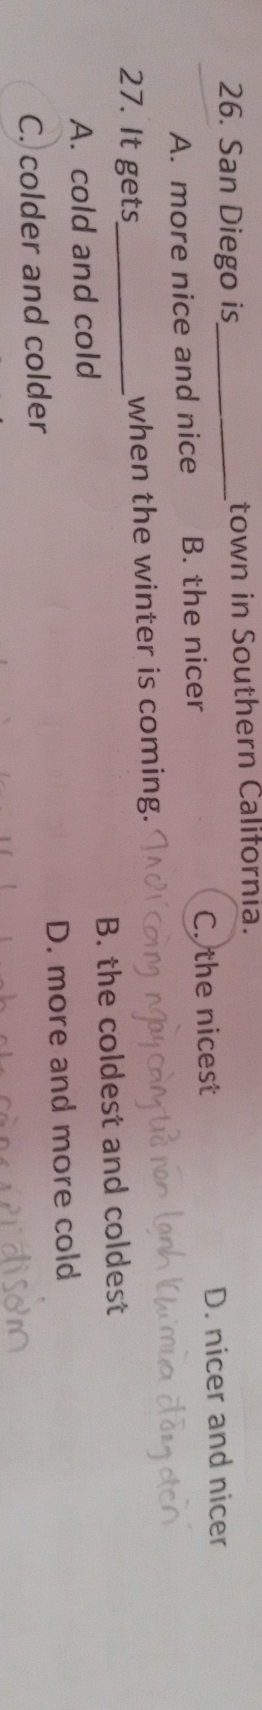 26. San Diego is__________town in Southern California.
A. more nice and nice B. the nicer C. the nicest D. nicer and nicer
27. It gets__________when the winter is coming. càng ngày càng trở nên lạnh khi mùa đông đến
A. cold and cold B. the coldest and coldest
C. colder and colder D. more and more cold
đi sớm